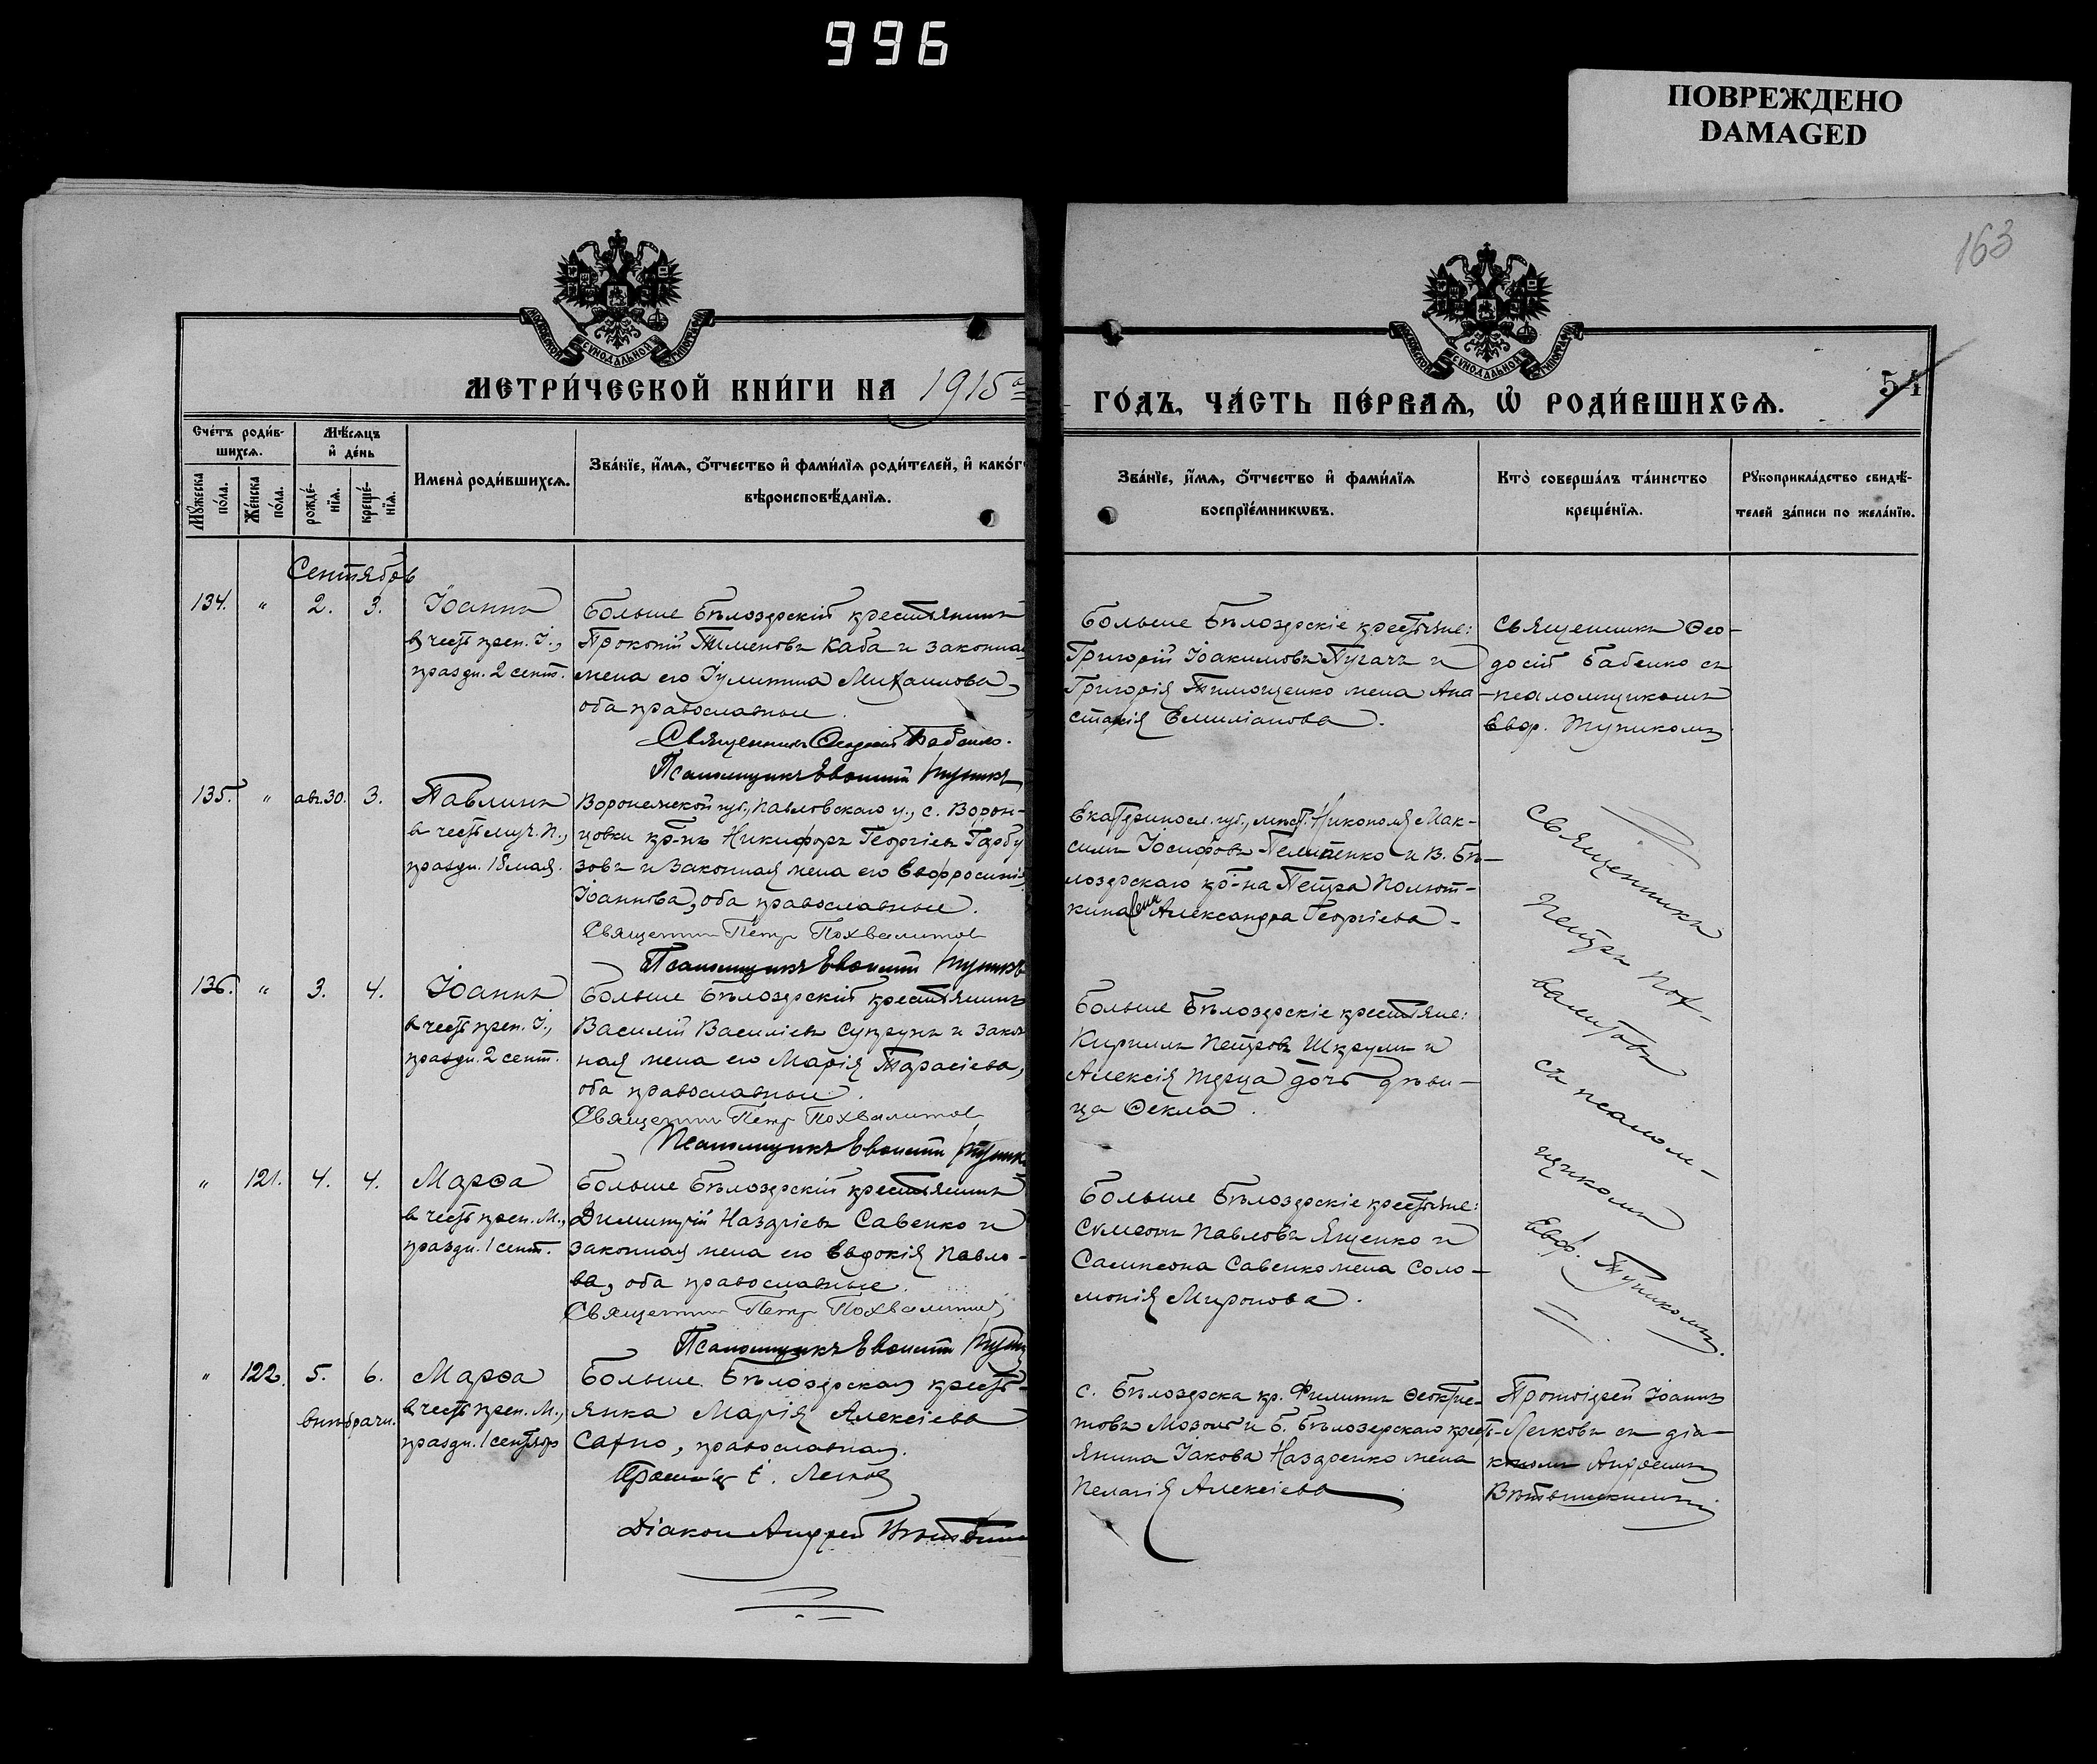 996
ПОВРЕЖДЕНО
DAMAGED
163
МЕТРИ́ЧЕСКОЙ КНИ́ГИ НА 1915
ГО́ДЪ, ЧА́СТЬ ПЕ́РВАѦ, Ѡ҆ РОДИ́ВШИХСѦ.
54
Сче́тъ роди́в-
шихсѧ.
Мѣ́сѧцъ
и҆ де́нь
Мꙋ́жеска по́ла.
Же́нска по́ла.
рожде́-
нїѧ.
креще́-
нїѧ.
Имена̀ роди́вшихсѧ.
Зва́нїе, и҆́мѧ, ѻ҆́тчество и҆ фами́лїѧ роди́телей, и҆ како́г
вѣроисповѣ́данїѧ.
Зва́нїе, и҆́мѧ, ѻ҆́тчество и҆ фами́лїѧ
воспрїе́мникѡвъ.
Кто̀ соверша́лъ та́инство
креще́нїѧ.
Рꙋкоприкла́дство свидѣ́-
телей за́писи по жела́нїю.
Сентябрь
134. „ 2. 3. Іоаннъ
въ честь преп. І.,
праздн. 2 сент.
Больше Бѣлозерскій крестьянинъ
Прокопій Каба и законна
жена его Іулитта Михаилова,
оба православные.
Священникъ Ѳеодосій Бабенко.
Псаломщикъ Евѳимій Тупикъ
Больше Бѣлозерскіе крестьяне:
Григорій Іоакимовъ Пугачъ и
Григорія Тимощенко жена Ана-
стасія Емиліанова.
Священникъ Ѳео-
досій Бабенко съ
псаломщикомъ
Евф. Тупикомъ
135. „ авг. 30. 3. Павлинъ
въ честь муч. П.,
праздн. 18 мая.
Воронежской губ., Павловскаго у., с. Ворон-
цовки кр-нъ Никифоръ Георгіевъ Гарбу
зовъ и законная жена его Евфросинія
Іоаннова, оба православные.
Священникъ Петръ Похвалитовъ
Псаломщикъ Евѳимій Тупикъ
Екатериносл. губ., мѣст. Никополя Мак-
симъ Іосифовъ и В. Бѣ-
лозерскаго кр-на Петра Полют-
кина жена Александра Георгіева.
Священникъ
Петръ Пох-
валитовъ
съ псалом-
щикомъ
Евф. Тупикомъ.
136. „ 3. 4. Іоаннъ
въ честь преп. І.,
праздн. 2 сент.
Больше Бѣлозерскій крестьянинъ
Василій Василіевъ Супрунъ и закон
ная жена его Марія Тарасіева,
оба православные.
Священникъ Петръ Похвалитовъ
Псаломщикъ Евѳимій Тупикъ
Больше Бѣлозерскіе крестьяне:
Кириллъ Петровъ и
Алексія дочь дѣви-
ца Ѳекла.
„ 121. 4. 4. Марѳа
въ честь преп. М.,
праздн. 1 сент.
Больше Бѣлозерскій крестьянинъ
Димитрій Назаріевъ Савенко и
законная жена его Евдокія Павло-
ва, оба православные.
Священникъ Петръ Похвалитовъ
Псаломщикъ Евѳимій Тупи
Больше Бѣлозерскіе крестьяне:
Сѵмеонъ Павловъ Ященко и
Сампсона Савенко жена Соло-
монія Миронова.
„ 122. 5. 6. Марѳа
внѣбрачн.
въ честь преп. М.,
праздн. 1 сентября
Больше Бѣлозерская кресть-
янка Марія Алексіева
Сахно, православная.
І. Легковъ
Діаконъ Андрей
с. Бѣлозерска кр. Филиппъ Ѳеокти-
товъ и Б. Бѣлозерскаго крест-
янина Іакова Назаренко жена
Пелагія Алексіева
Протоіерей Іоаннъ
Легковъ съ діа-
кономъ Андреемъ